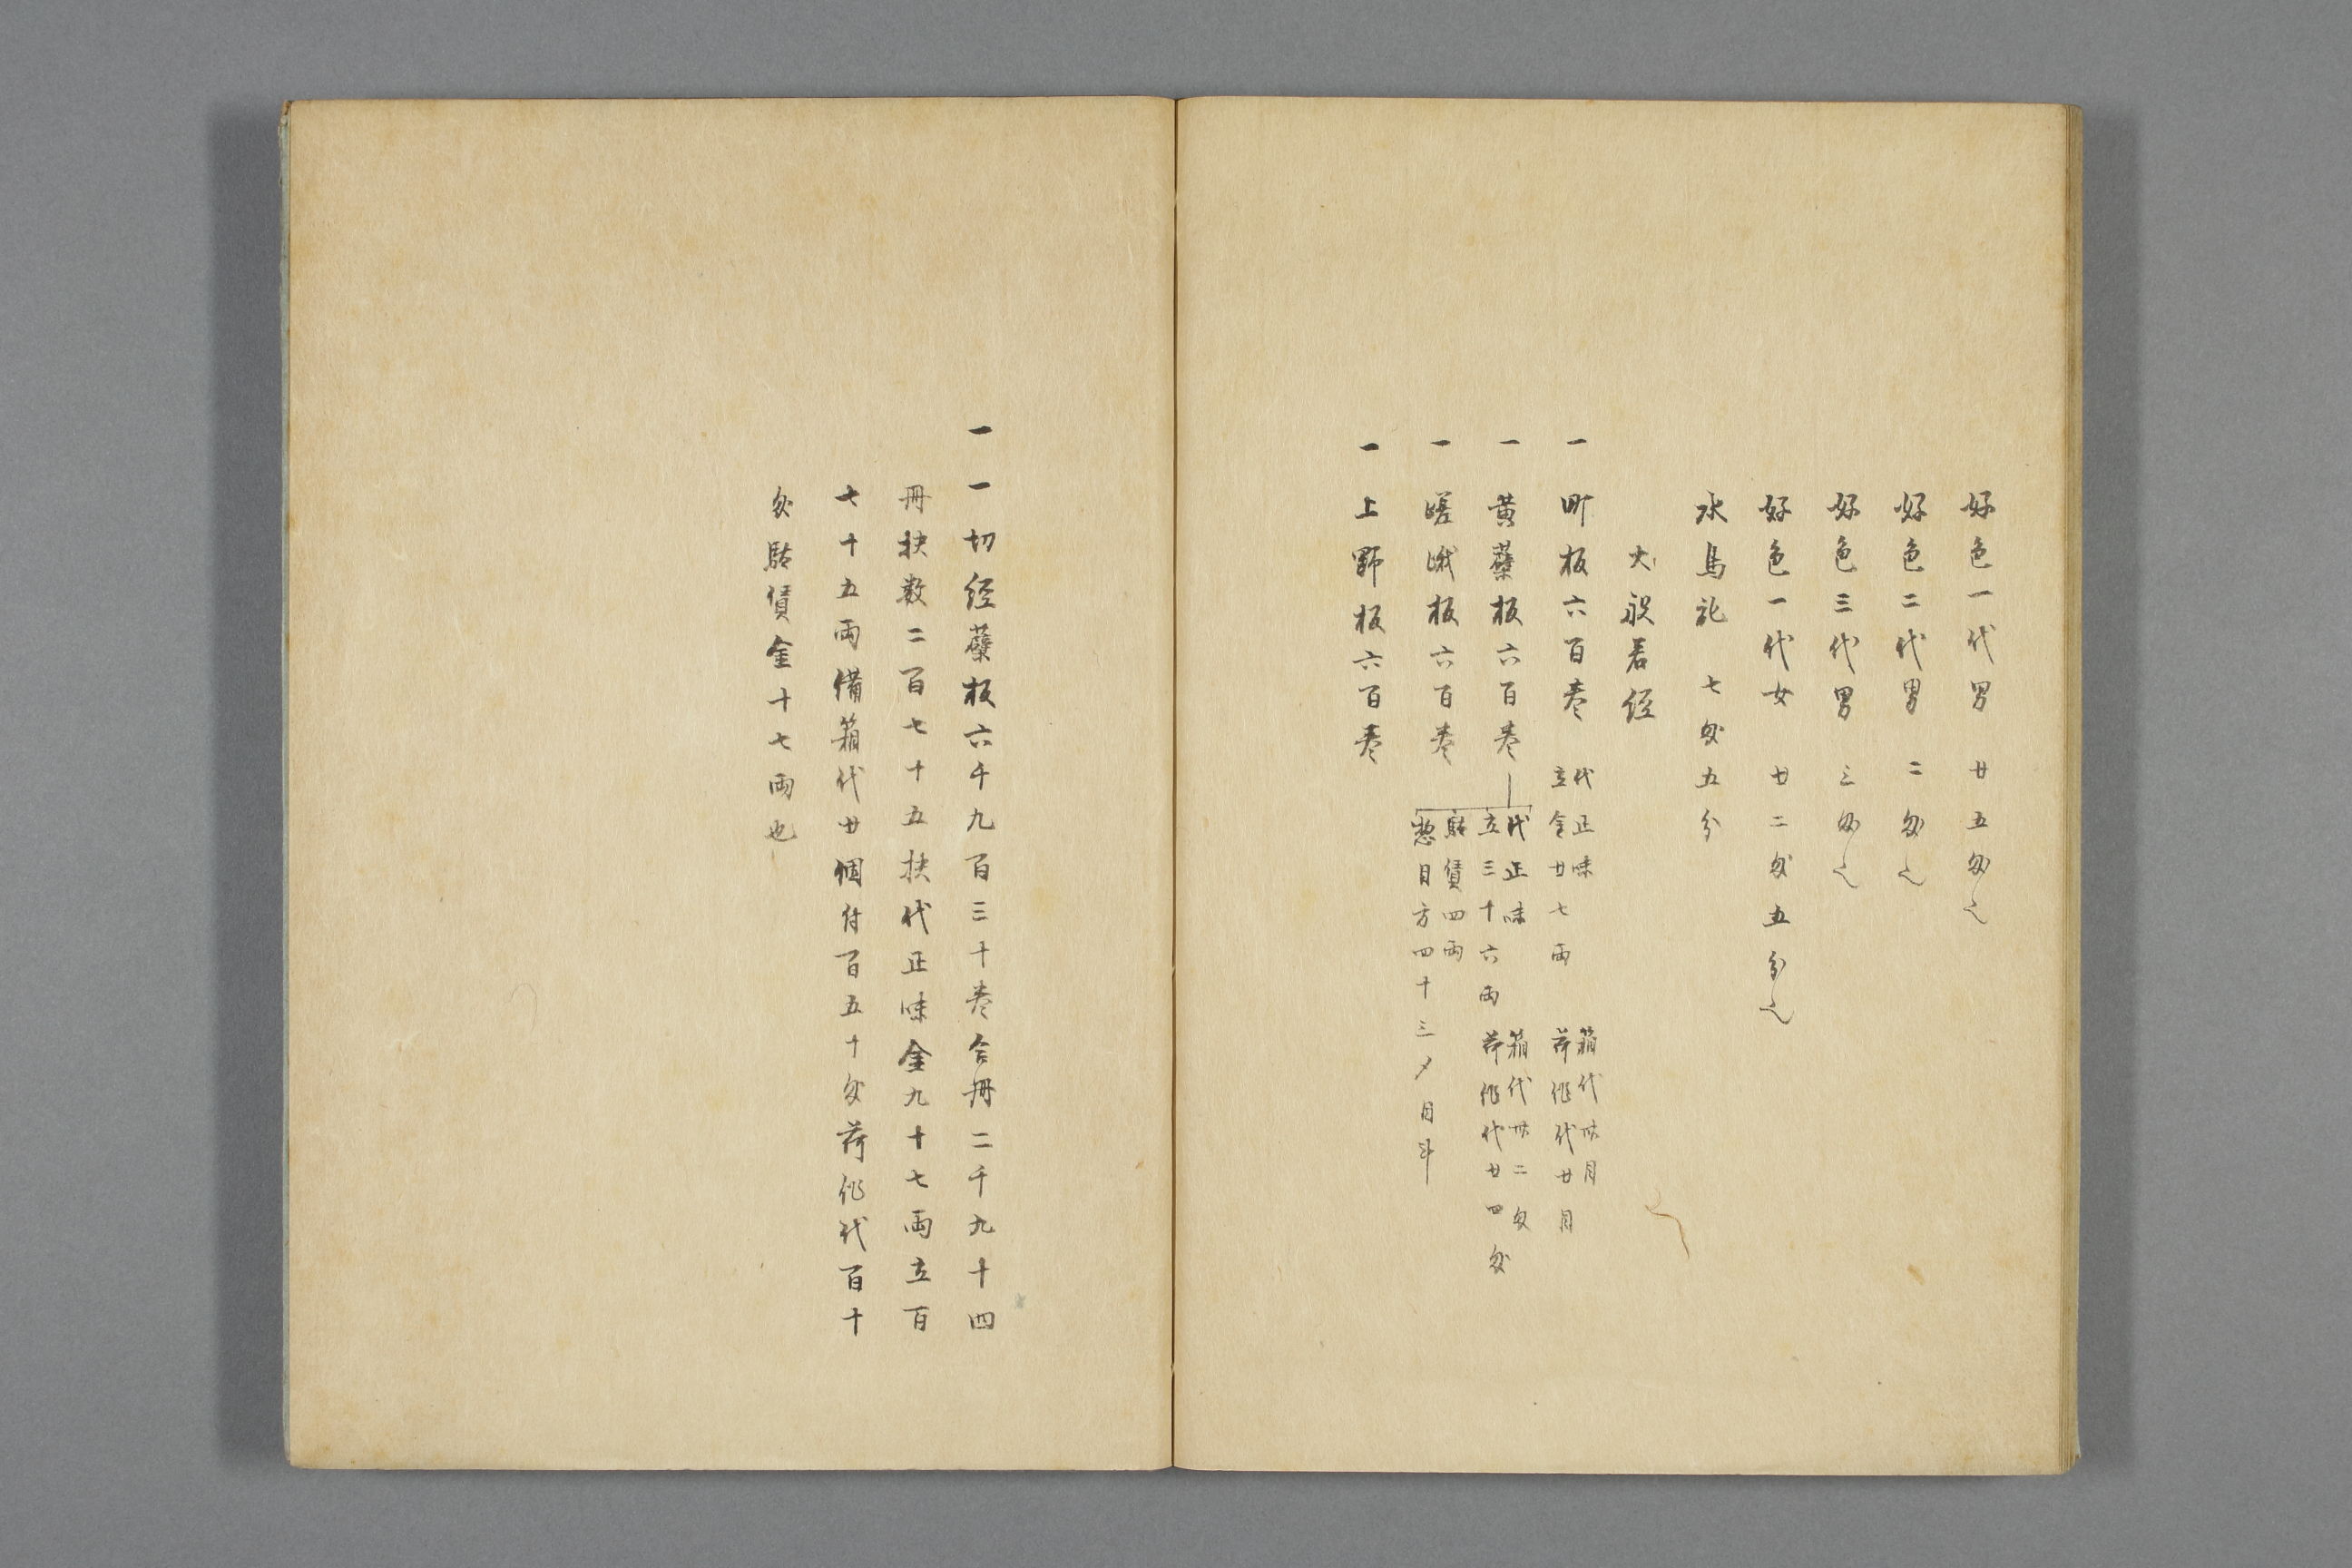 好色一代男 廿五匁〻
好色二代男 二匁〻
好色三代男 三匁〻
好色一代女 廿二匁五分〻
水鳥記 七匁五分
大般若経
一 町板六百巻 代正味 立金廿七両 箱代卅目 荷作代廿目
一 黄蘗板六百巻 代正味 立三十六両 箱代卅二匁 荷作代廿四匁
一 嵯峨板六百巻 駄賃四両 惣目方四十三〆目斗
一 上野板六百巻
一 一切経蘗板六千九百三十巻合冊二千九十四
冊抉数二百七十五抉代正味金九十七両立百
七十五両備箱代廿個付百五十匁荷作代百十
匁駄賃金十七両也